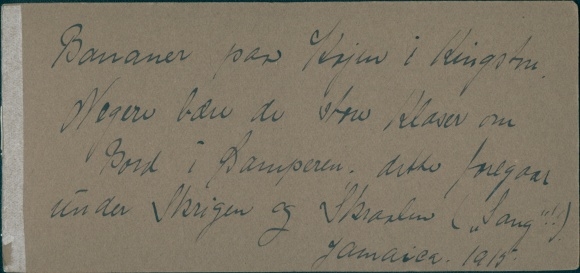 Bananer paa Kajen i Kingston.
Negere bære de store Klaser om
Bord i Damperen. dette foregaar
under Skrigen og Skraalen ("Sang"!!)
Jamaica. 1915.